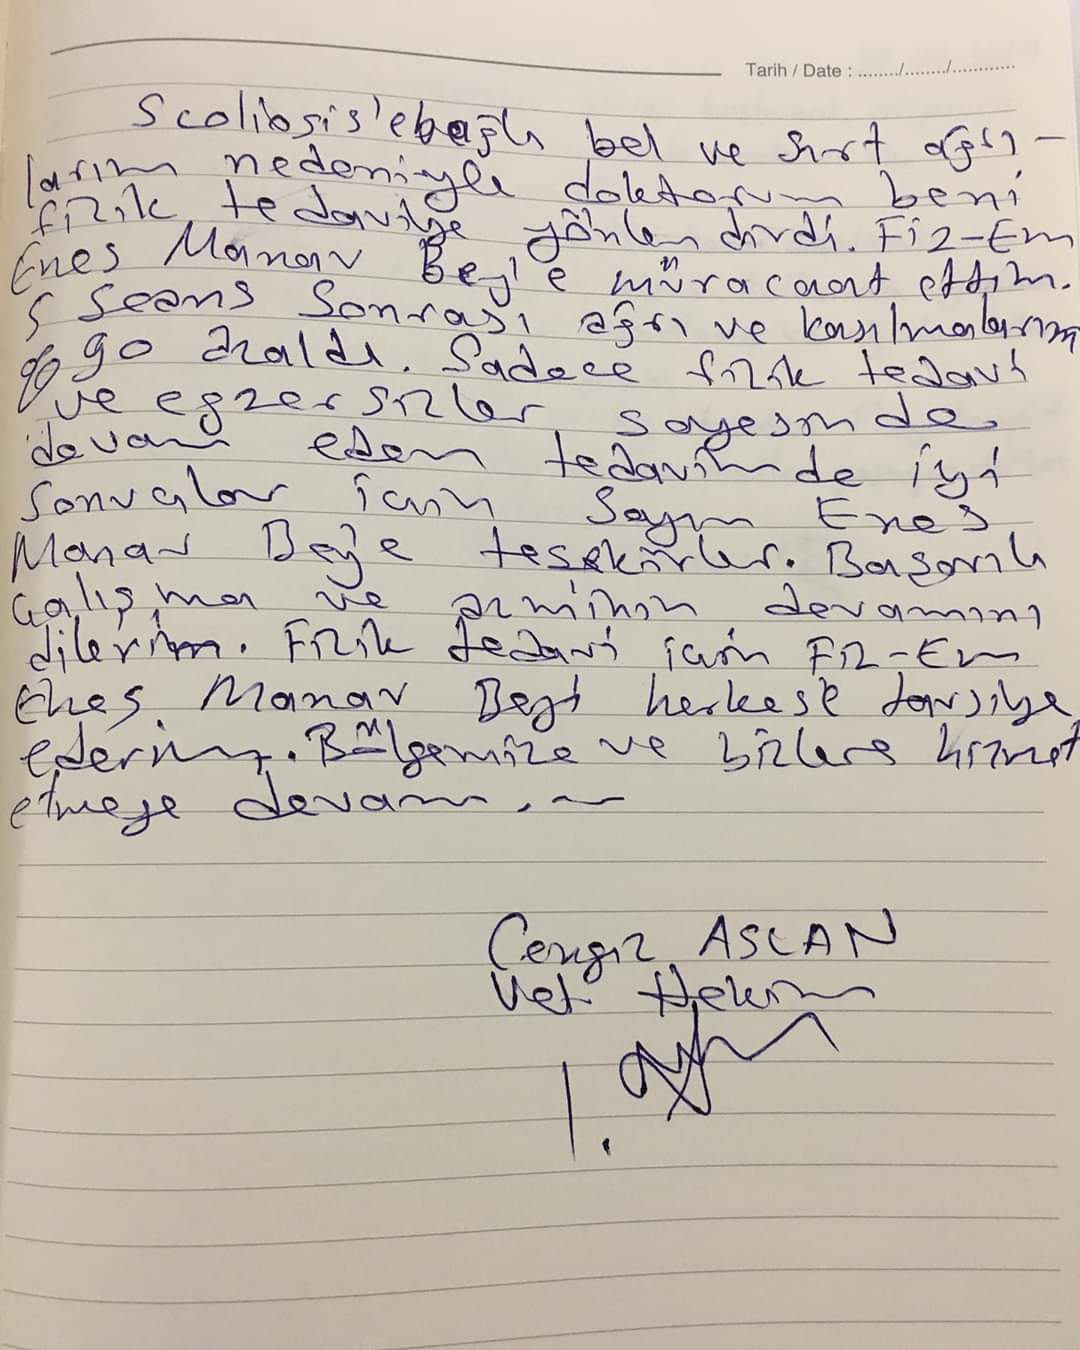 Tarih / Date : ......../......../............
Scoliosis'e bağlı bel ve sırt ağrı-
larım nedeniyle doktorum beni
fizik tedaviye yönlendirdi. Fiz-Em
Enes Manav Bey'e müracaat ettim.
5 Seans Sonrası ağrı ve kasılmalarım
%90 azaldı. Sadece fizik tedavi
ve egzersizler sayesinde
devam eden tedavimde iyi
sonuçlar için Sayın Enes
Manav Beye teşekkürler. Başarılı
çalışma ve azminin devamını
dilerim. Fizik tedavi için Fiz-Em
Enes Manav Beyi herkese tavsiye
ederim. Bölgemize ve bizlere hizmet
etmeye devam.
Cengiz ASLAN
Vet. Hekim